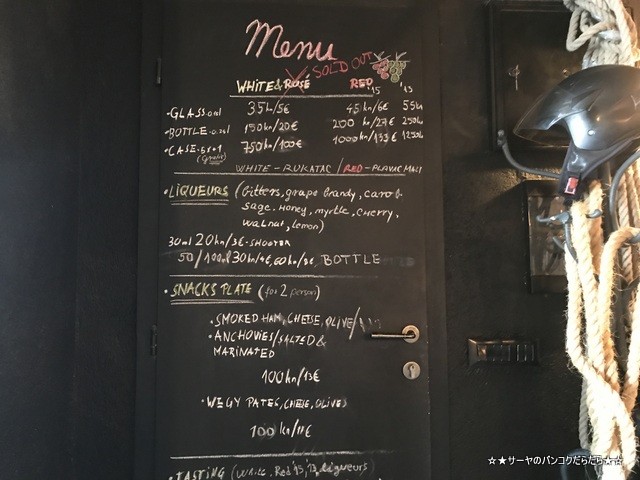 Menu
SOLD OUT
WHITE & ROSÉ RED '15 '13
• GLASS 0.1l 35kn/5€ 45kn/6€ 55kn
• BOTTLE 0.75l 150kn/20€ 200kn/27€ 250kn
• CASE 5+1 750kn/100€ 1000kn/133€ 1250kn
(gratis)
WHITE - RUKATAC / RED - PLAVAC MALI
• LIQUEURS (bitters, grape brandy, carob,
sage, honey, myrtle, cherry,
walnut, lemon)
30ml 20kn/3€ - SHOOTER
50/100ml 30kn/4€, 60kn/8€, BOTTLE
• SNACKS PLATE (for 2 person)
• SMOKED HAM, CHEESE, OLIVE/
• ANCHOVIES/SALTED &
MARINATED
100kn/13€
• VEGY PATES, CHEESE, OLIVES
100kn/11€
• TASTING (White, Red '15, '13, Liqueurs)
☆★サーヤのバンコクだらだら★☆